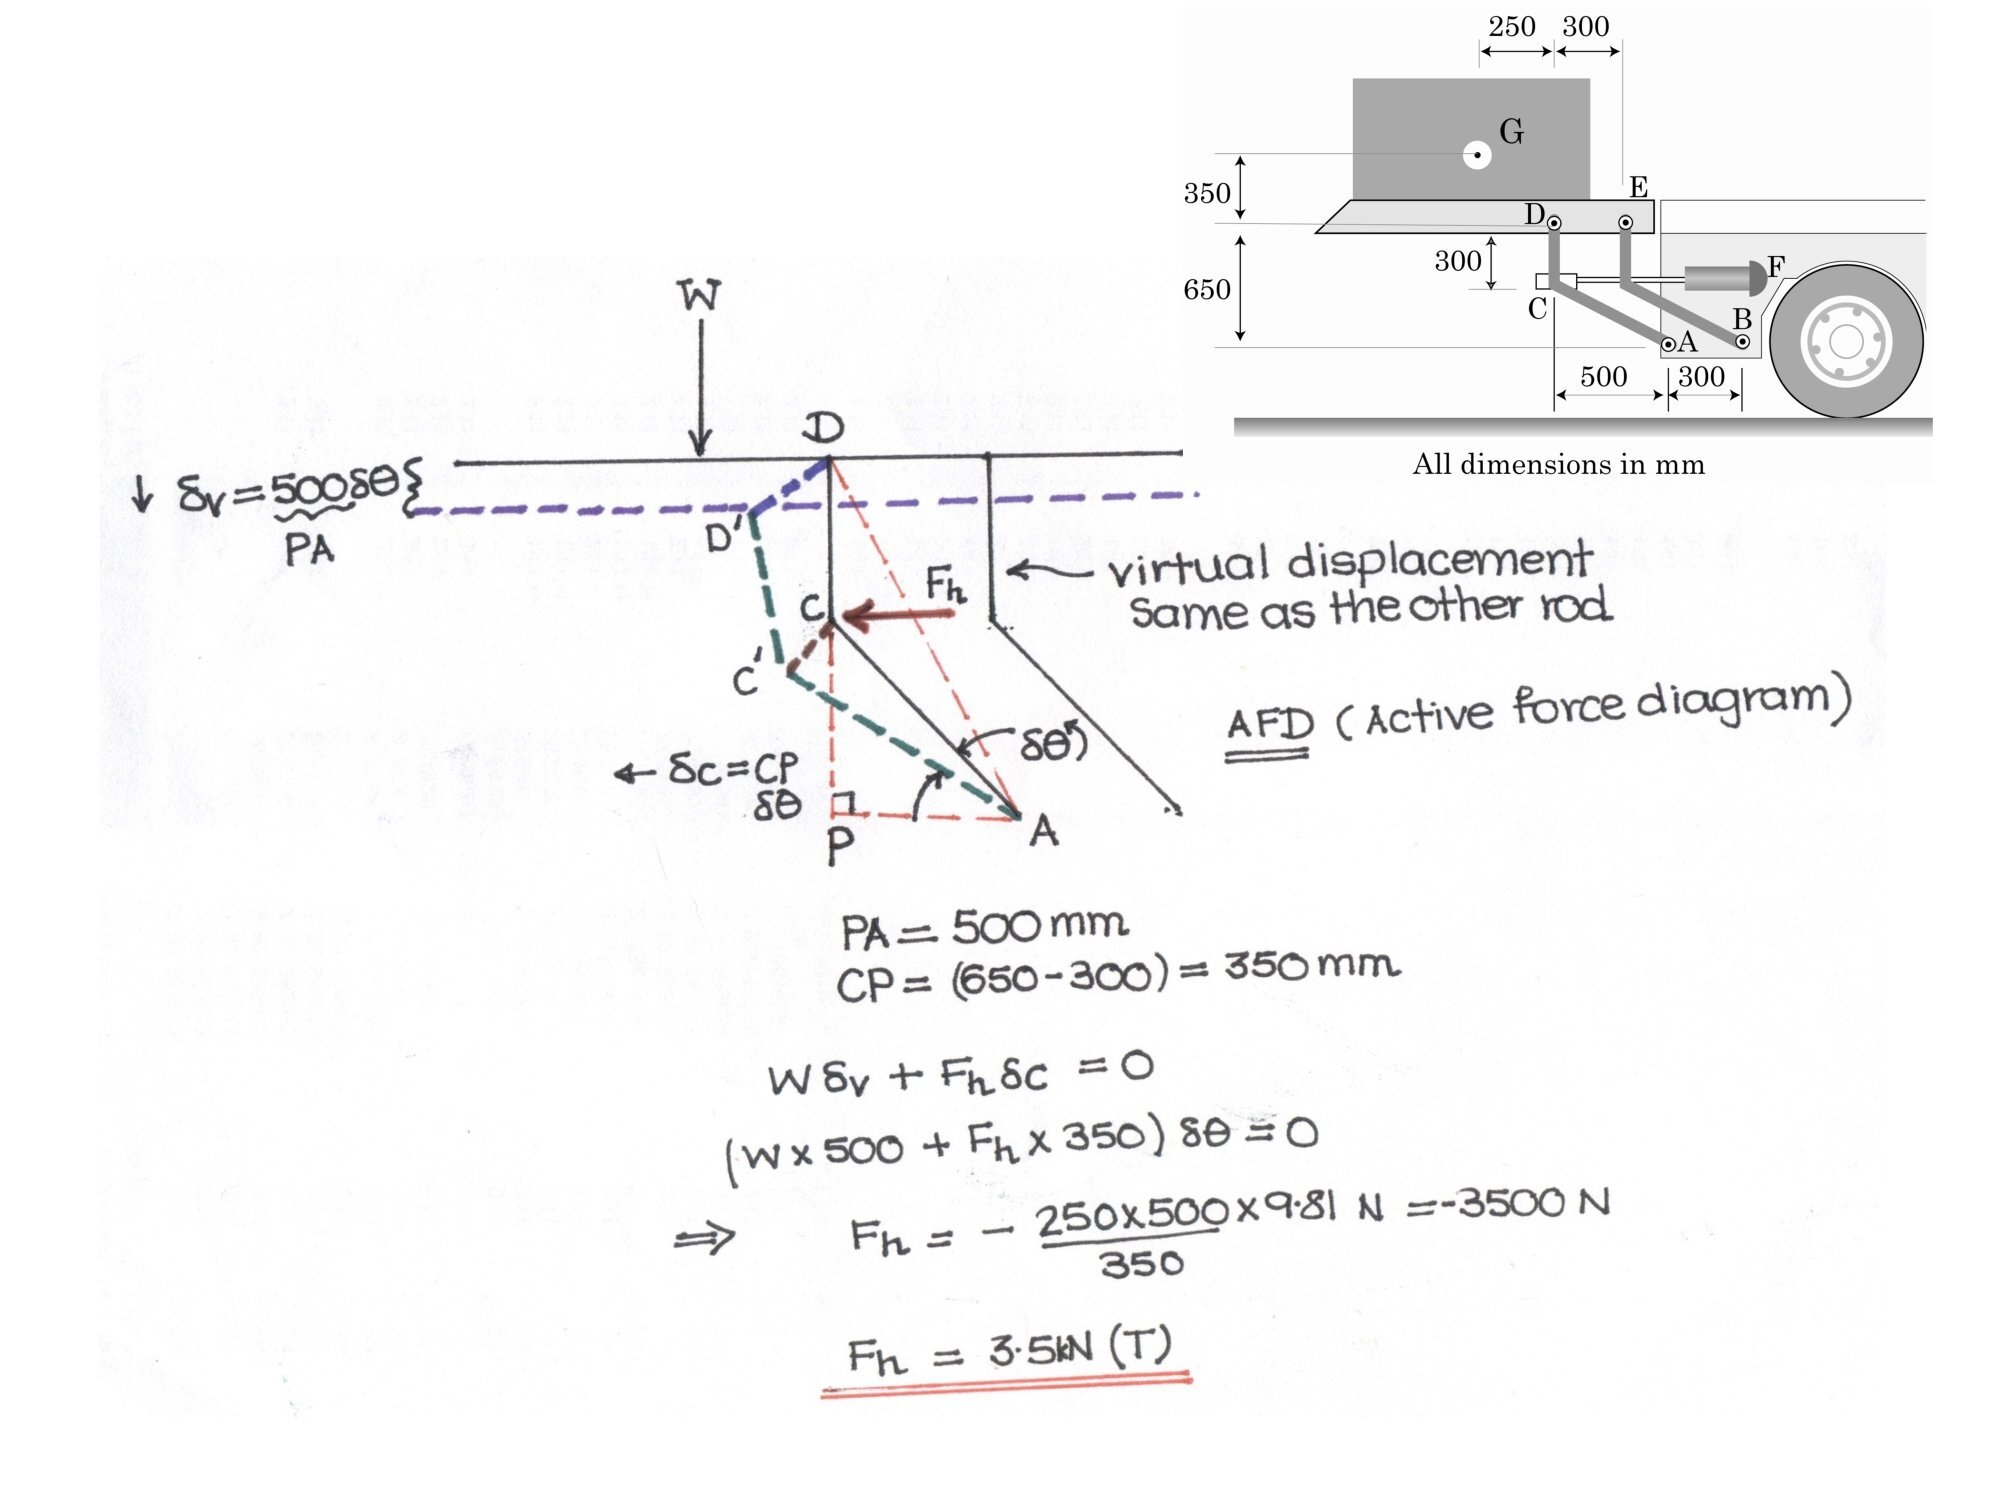 250 300
G
350
E
D
300
F
650
C
B
A
500 300
All dimensions in mm
W
D
↓ δv = 500δθ {
PA
D'
Fh
C
← virtual displacement
same as the other rod
C'
AFD (Active force diagram)
δθ
← δc = CP
δθ
P
A
PA = 500 mm
CP = (650-300) = 350 mm
W δv + Fh δc = 0
(W x 500 + Fh x 350) δθ = 0
⇒ Fh = - 250x500x9.81 N = -3500 N
350
Fh = 3.5kN (T)